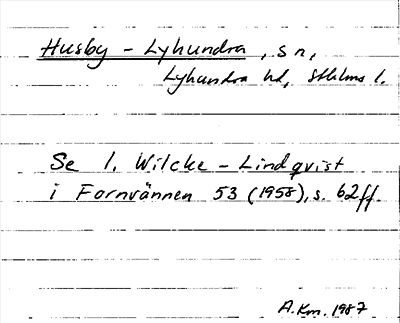 Husby - Lyhundra, sn,
Lyhundra hd, Sthlms l.
Se I. Wilcke-Lindqvist
i Fornvännen 53 (1958), s. 62ff.
A.Km. 1987